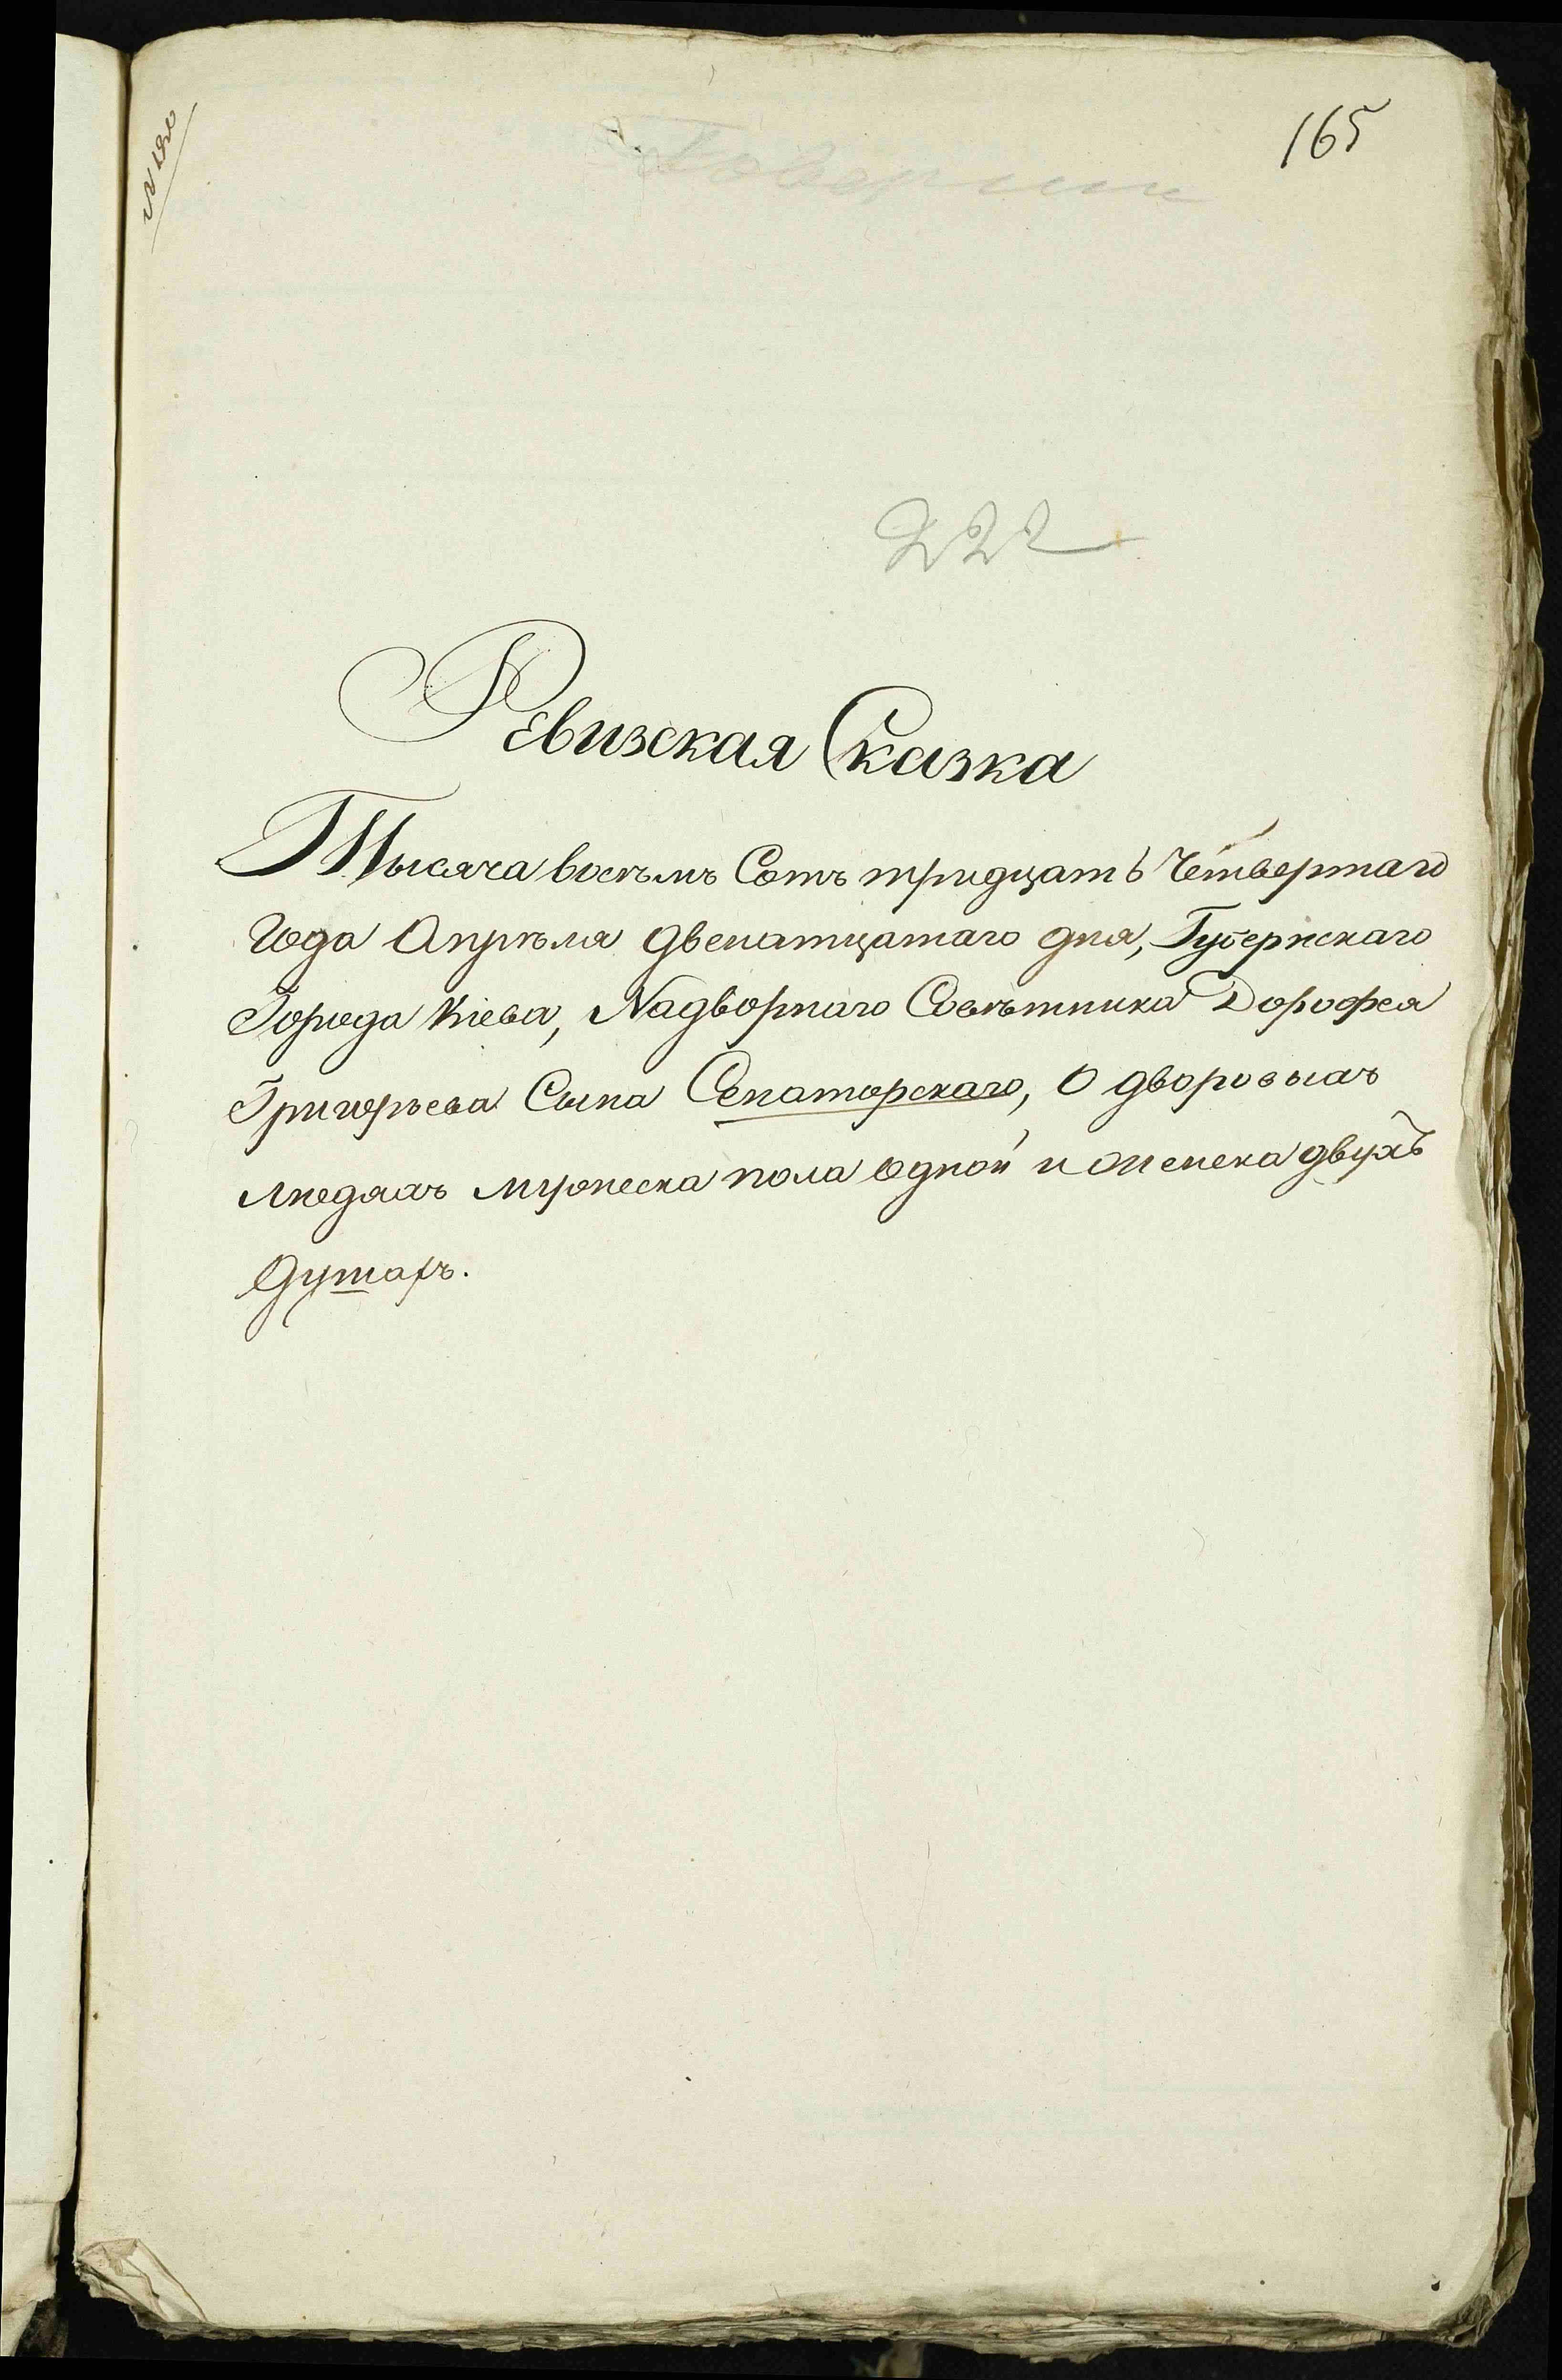 165
222
Ревизская Сказка
Тысяча восъмъ Сотъ тридцать Четвертаго
Года Апрѣля двенатцатаго дня, Губернскаго
Города Кіева, Надворнаго Совѣтника Дорофея
Григорьева Сына Сенаторскаго, О дворовыхъ
людяхъ мужеска пола Одной и женска двухъ
душахъ.